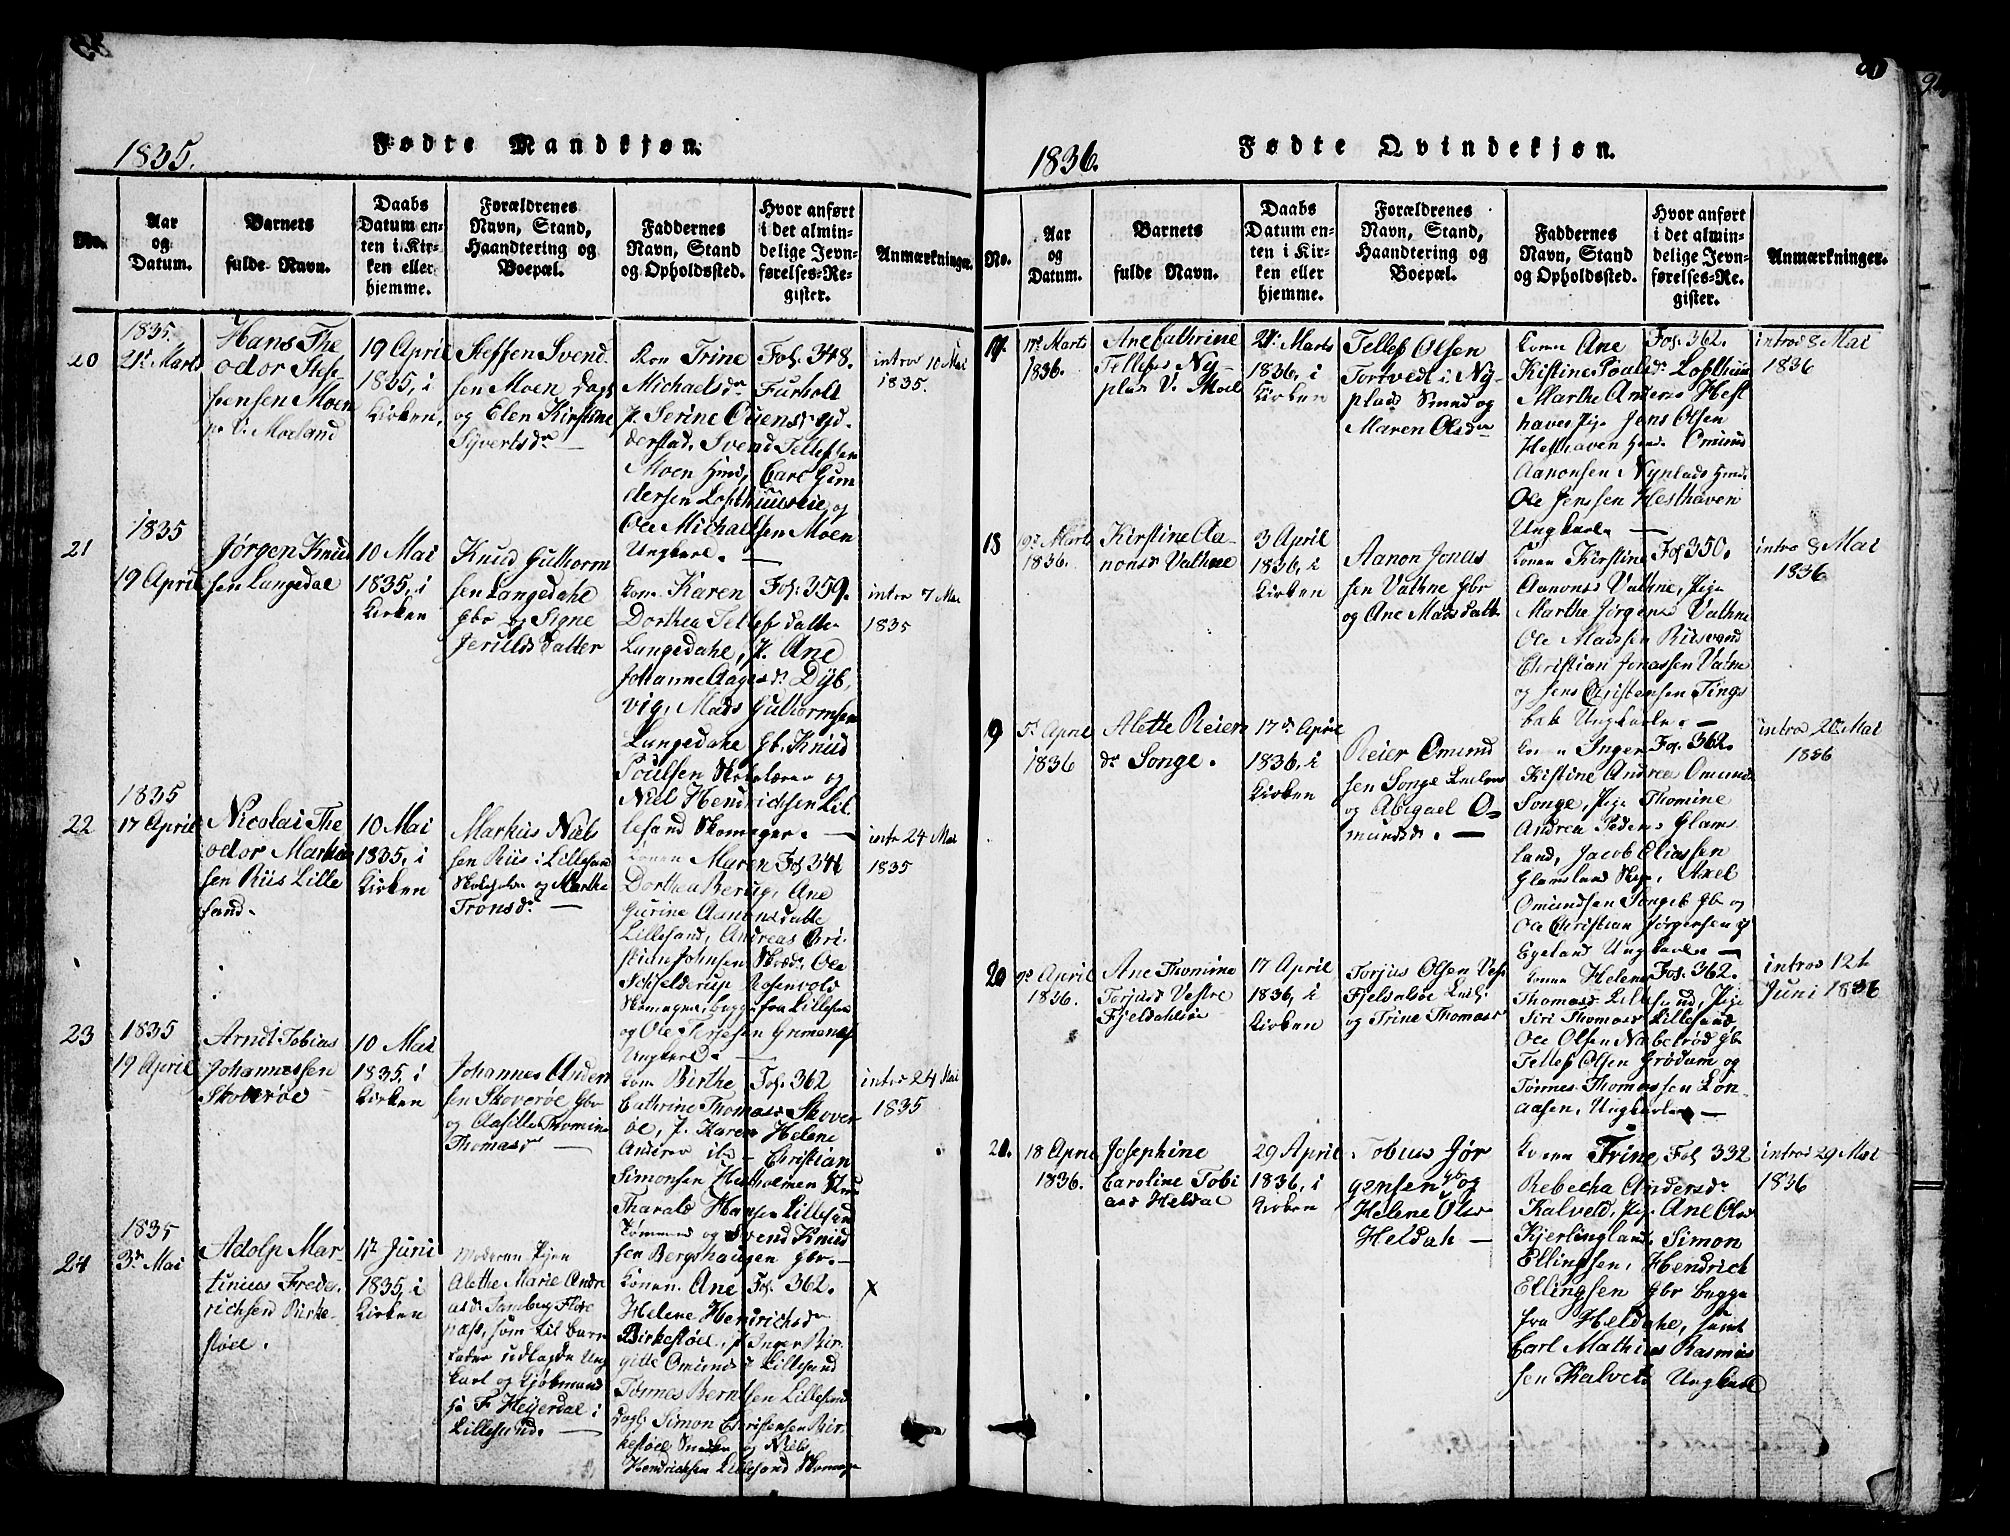 1835.
Fødte Mandkjøn.
No.
Aar
og
Datum.
Barnets
fulde Navn.
Daabs
Datum en-
ten i Kir-
ken eller
hjemme.
Forældrenes
Navn, Stand,
Haandtering og
Boepæl.
Faddernes
Navn, Stand
og Opholdssted.
Hvor anført
i det almin-
delige Jevn-
førelses-Re-
gister.
Anmærkninger.
20
1835.
21de Marts
Hans The
odor Stef
fensen Moen
Moeland
19 April
1835, i
Kirken,
Steffen Svend
sen Moen Dags
og Elen Kirstine
Syvertsdr —
Kon Trine Fol. 348.
Michaelsdr Furholt
P. Serine Oluensdr Yd-
derstad, Svend Tellefsen
Moen Huusd, Carl Gun
dersen Lofthuuseie og
Ole Michaelsen Moen
Ungkarl. —
intro 10 Mai
1835.
21
1835
19 April
Jørgen Knud
sen Langedal
10 Mai
1835, i
Kirken
Knud Guthorm
sen Langedahl
Gbr og Signe
Jerulds Datter
Kon. Karen Fol. 359.
Dorthea Tellefsdatter
Langedahl, P. Ane
Johanne Aagesdr Dyb,
vig, Mads Guthormsen
Langedahl Gb. Knud
Poulsen Skolelærer og
Niel Hendrichsen Lil
lesand Skomager. —
intro 7 Mai
1835
22
1835
17 April
Nicolai The
odor Markus
sen Riis Lille
sand.
10 Mai
1835, i
Kirken
Markus Niels
sen Riis i Lillesand
og Marthe
Tronsdr —
Konen Maren Fol 341
Dorthea Berug, Ane
Gurine Aanonsdatte
Lillesand, Andreas Chri
stian Johnsen Skræd. Ole
Schielderup Rosenvold
Skomager, begge fra Lillesand
og Ole Terjesen Grimenes
Ungkarl. —
intr 24 Mai
1835
23
1835
19 April
Arndt Tobias
Johannessen
Skoverøe
10 Mai
1835, i
Kirken
Johannes Anders
sen Skoverøe Gbr
og Aasille Thomine
Thomasdr —
Kon. Birthe Fol. 362
Cathrine Thomasdr Skover
øe, P. Karen Helene
Andersdr ibd — Christian
Simonsen Hestholmen
Tharald Hansen Lillesand
Tømmermd og Svend Knud
sen Bergshaugen Gbr. —
intro 24 Mai
1835
24
1835
3de Mai
Adolp Mar-
tinius Frede-
richsen Birke-
støel.
1ste Juni
1835, i
Kirken
Moderen Pigen
Alethe Marie Andre
asdr
næs, som til barne
fader udlagde Ung
karl og Kjøbmand
F Heyerdal i
Lillesand. —
Konen Ane Fol. 362.
Helene Hendrichsdr
Birkestøel, P Inger Bir-
gitte Omundsdr Lillesand
Tønnes Berntsen Lillesand
Dagl. Simon Christensen Bir-
kestøel Snedker og Niels
Hendrichsen Lillesand Skomager
x
1836.
Fødte Qvindekjøn.
No.
Aar
og
Datum.
Barnets
fulde Navn.
Daabs
Datum en-
ten i Kir-
ken eller
hjemme.
Forældrenes
Navn, Stand,
Haandtering og
Boepæl.
Faddernes
Navn, Stand
og Opholdssted.
Hvor anført
i det almin-
delige Jevn-
førelses-Re-
gister.
Anmærkninger.
17.
17de Marts
1836.
Ane Cathrine
Tellefsdr Ny-
plads V. Moel
27de Marts
1836, i
Kirken
Tellef Olsen
Tortvedt i Ny-
plads Smed og
Maren Olsdr
Konen Ane Fol. 362.
Kistine Poulsdr Lofthuus
Marthe Andersdr Hest
haven Pige Jens Olsen
Hesthaven Huusd. Omund
Aanonsen Nyplads Huusd.
Ole Jenssen Hesthaven
Ungkarl. —
introd 8 Mai
1836
18
19de Marts
1836.
Kirstine Aa-
nonsdr Vathne
3 April
1836, i
Kirken
Aanon Jonas
sen Vathne Gbr
og Ane Madsdatter
Konen Kirstine Fol 350.
Aanonsdr Vathne, Pige
Marthe Jørgensdr Vathne
Ole Madssen Riisvand
Christian Jonassen Vatne
og Jens Christensen Tings
bak Ungkarle. —
intro 8 Mai
1836
19
5de April
1836
Alette Reier
dr Songe.
17de April
1836, i
Kirken
Reier Omund
sen Songe
og Abigael O-
mundsdr. —
Konen Inger Fol. 362.
Kistine Andrea Omunds
Songe, Pige Thomine
Andrea Pedersdr Glams
land, Jacob Eliassen
Glamsland Skp. Axel
Omundsen Songe Gbr og
Ole Christian Jørgensen
Egeland Ungkarle —
intro 20de Mai
1836
20
9de April
1836.
Ane Thomine
Torjusdr Vestre
Fjeldahlsøe
17 April
1836, i
Kirken
Torjus Olsen Vest
Fjelsalsøe
og Trine Thomasdr
Konen Helene Fol. 362.
Thomasdr Lillesand, Pige
Siri Thomasdr Lillesand,
Ole Olsen Nabelrød Gbr
Tellef Olsen Grødum og
Tønnes Thomassen Lon-
aasen, Ungkarle —
intrO 12t
Juni 1836
21.
18 April
1836.
Josephine
Caroline Tobi
asdr Heldal
29 April
1836, i
Kirken
Tobias Jør
gensen Gbr og
Helene Olsdr
Heldahl —
Konen Trine Fol 332
Rebecha Andersdr
Kalveld, Pige Ane Olsdr
Kjerlingland, Simon
Ellingsen, Hendrich
Ellingsen Gbr begge
fra Heldahl, samt
Carl Mathias Rasmus
sen Kalveld Ungkarl
intro 29 Mai
1836